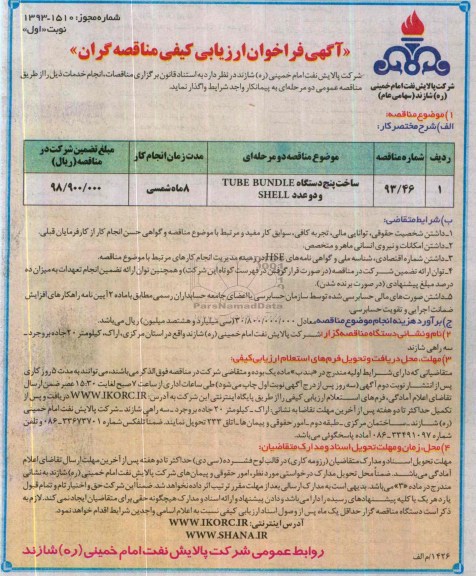 شماره مجوز: ۱۵۱۰-۱۳۹۳
نوبت «اول»
«آگهی فراخوان ارزیابی کیفی مناقصه گران»
شرکت پالایش نفت امام خمینی
(ره) شازند (سهامی عام)
شرکت پالایش نفت امام خمینی (ره) شازند در نظر دارد به استناد قانون برگزاری مناقصات، انجام خدمات ذیل را از طریق
مناقصه عمومی دو مرحله‌ای به پیمانکار واجد شرایط واگذار نماید.
۱) موضوع مناقصه:
الف) شرح مختصر کار:
ردیف شماره مناقصه موضوع مناقصه دو مرحله‌ای مدت زمان انجام کار مبلغ تضمین شرکت در مناقصه (ریال)
۱ ۹۳/۴۶ ساخت پنج دستگاه TUBE BUNDLE و دو عدد SHELL ۸ ماه شمسی ۹۸/۹۰۰/۰۰۰
ب) شرایط متقاضی:
۱ـ داشتن شخصیت حقوقی، توانایی مالی، تجربه کافی، سوابق کار مفید و مرتبط با موضوع مناقصه و گواهی حسن انجام کار از کارفرمایان قبلی.
۲ـ داشتن امکانات و نیروی انسانی ماهر و متخصص.
۳ـ داشتن شماره اقتصادی، شناسه ملی و گواهی نامه‌های HSE در زمینه مدیریت انجام کارهای مرتبط با موضوع مناقصه.
۴ـ توان ارائه تضمین شرکت در مناقصه (در صورت قرار گرفتن در فهرست کوتاه این شرکت) و همچنین توان ارائه تضمین انجام تعهدات به میزان ده
درصد مبلغ پیشنهادی (در صورت برنده شدن).
۵ـ داشتن صورت های مالی حسابرسی شده توسط سازمان حسابرسی یا اعضای جامعه حسابداران رسمی مطابق با ماده ۲ آیین نامه راهکارهای افزایش
ضمانت اجرایی و تقویت حسابرسی.
ج) برآورد هزینه انجام موضوع مناقصه معادل ۳۰/۸۰۰/۰۰۰/۰۰۰ (سی میلیارد و هشتصد میلیون) ریال می‌باشد.
۲) نام و نشانی دستگاه مناقصه گزار: شرکت پالایش نفت امام خمینی (ره) شازند واقع در استان مرکزی، اراک، کیلومتر ۲۰ جاده بروجرد ـ
سه راهی شازند
۳) مهلت، محل دریافت و تحویل فرم های استعلام ارزیابی کیفی:
متقاضیانی که دارای شرایط اولیه مندرج در
تقاضای اعلام آمادگی، فرم‌های استعلام ارزیابی کیفی را از طریق پایگاه اینترنتی این شرکت به آدرس WWW.IKORC.IR دریافت و پس از
تکمیل حداکثر تا دو هفته پس از آخرین مهلت تقاضا به نشانی: اراک ـ کیلومتر ۲۰ جاده بروجرد ـ سه راهی شازند ـ شرکت پالایش نفت امام خمینی
(ره) شازند ـ ساختمان مرکزی ـ طبقه دوم ـ امور حقوقی و پیمان ها ـ اتاق ۲۳۳ تحویل نمایند. ضمنا تلفکس شماره ۳۳۶۷۳۷۰۱-۰۸۶ و تلفن
شماره ۳۳۴۹۱۰۹۷-۰۸۶ آماده پاسخگویی می‌باشد.
۴) محل، زمان و مهلت تحویل اسناد و مدارک متقاضیان:
مهلت تحویل اسناد و مدارک متقاضیان (رزومه کاری) در قالب لوح فشرده (سی دی) حداکثر تا دو هفته پس از آخرین مهلت ارسال تقاضای اعلام
آمادگی می‌باشد. ضمناً محل تحویل مدارک درخواستی مورد نظر، امور حقوقی و پیمان های شرکت پالایش نفت امام خمینی (ره) شازند به نشانی
مندرج در ماده «۳» می‌باشد. بدیهی است به مدارک ارسالی بعد از مهلت مقرر ترتیب اثر داده نخواهد شد. ضمناً این شرکت حق و اختیار تام و تمام قبول
یا رد هر یک یا کلیه پیشنهادهای رسیده را دارا می باشد و دادن پیشنهاد و ارائه اسناد و مدارک هیچگونه حقی برای متقاضیان ایجاد نمی کند. لازم به
ذکر است دستگاه مناقصه گزار حداقل یک ماه پس از وصول اسناد ارزیابی کیفی نسبت به اعلام اسامی واجدین شرایط اقدام خواهد نمود.
آدرس اینترنتی: WWW.IKORC.IR
WWW.SHANA.IR
روابط عمومی شرکت پالایش نفت امام خمینی (ره) شازند
۱۴۲۶/م الف
ParsNamadData